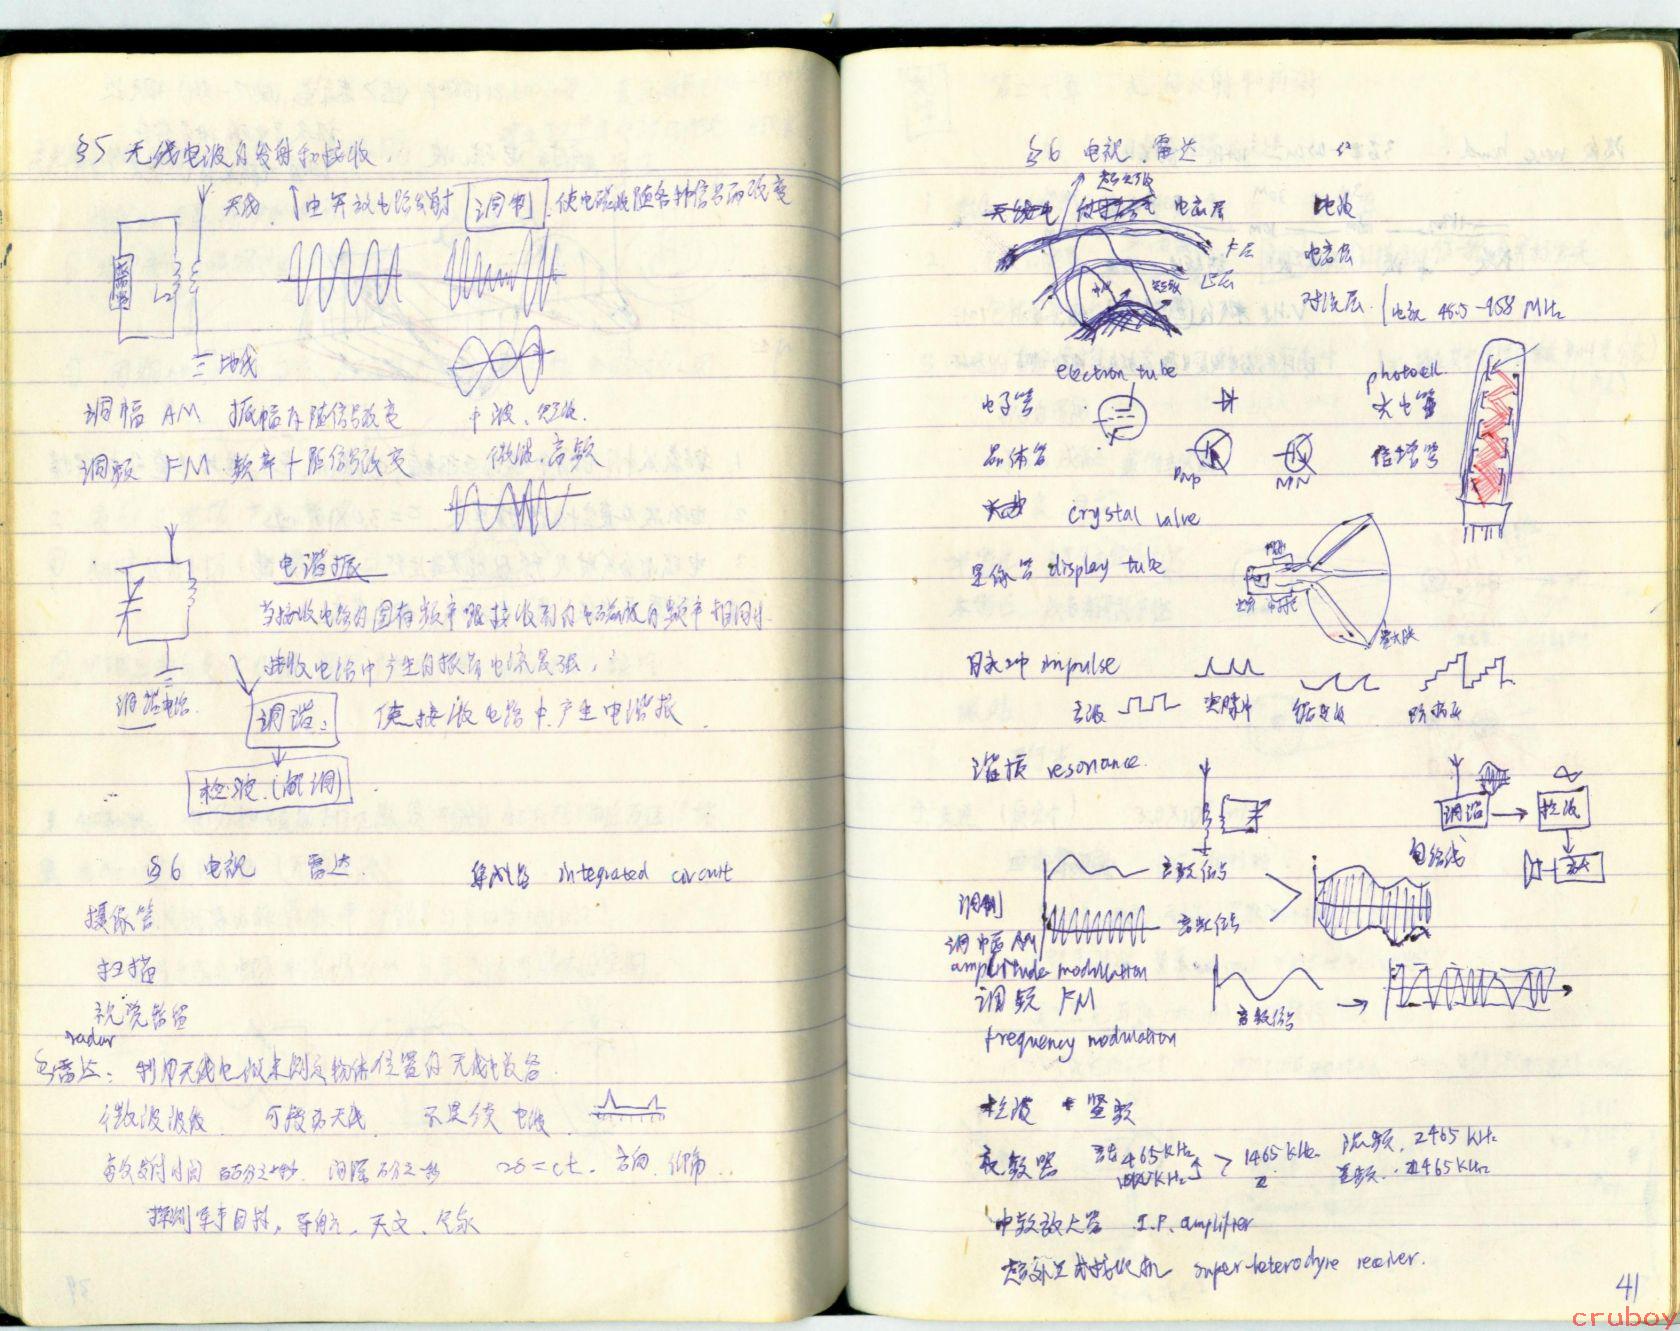 §5 无线电波的发射和接收
天线 由开放电路发射 调制 使电磁波随各种信号而改变
地线
调幅 AM 振幅随信号改变 中波、短波.
调频 FM 频率随信号改变 微波、高频
电谐振
当接收电路的固有频率跟接收到的电磁波的频率相同时
接收电路中产生的振荡电流最强
调谐电路
调谐: 使接收电路中产生电谐振
检波(解调)
§6 电视 雷达. 集成电路 integrated circuit
摄像管
扫描
视觉暂留
radar
雷达: 利用无线电波来测定物体位置的无线电设备.
微波波段 不是连续电波
每次发射时间 百万分之 间隔万分之一秒 2s=ct. 方向、仰角
探测军事目标, 导航、天文、气象
§6 电视 雷达
超短波
电离层 地波
F层 电离层
E层 对流层 电视 48.5-958 MHz
electron tube photocell
电子管 光电管
晶体管 PNP 倍增管
crystal valve
显像管 display tube
荧光屏
脉冲 impulse
方波
谐振 resonance
调谐 检波
包络线
音频信号
调制
调幅 AM
amplitude modulation
调频 FM
音频信号
frequency modulation
检波
变频器 465 kHz 1465 kHz 2465 kHz
差频 465 kHz
中频放大器 I.F. amplifier
超外差式接收机 super-heterodyne receiver.
41
cruboy